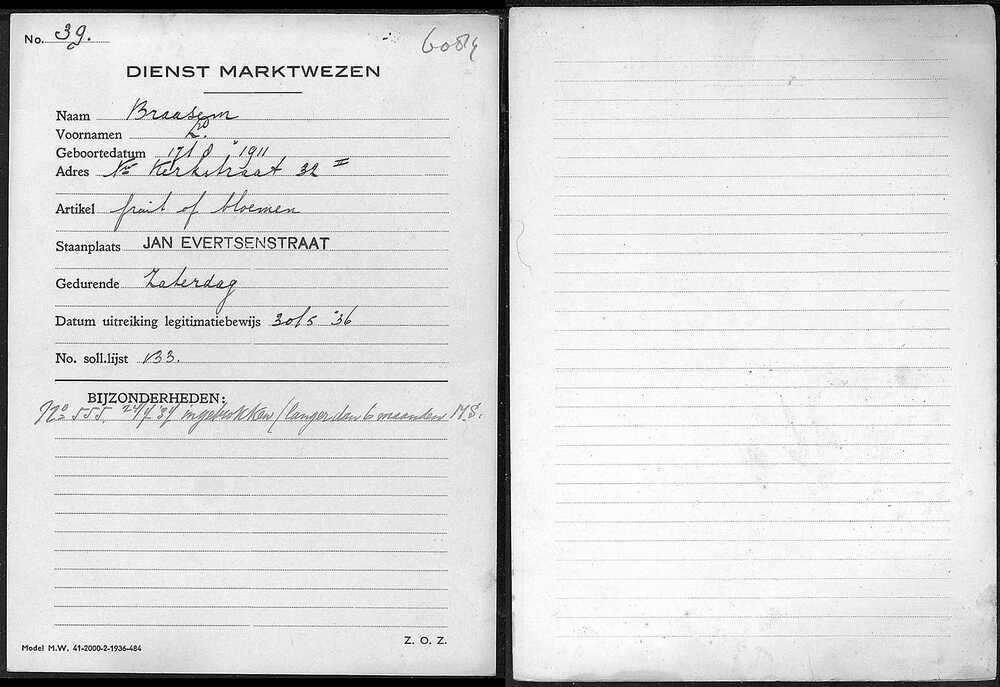 No. 39.
DIENST MARKTWEZEN
Naam Braasem
Voornamen L.
Geboortedatum 17/8 1911
Adres Nwe Kerkstraat 32 II
Artikel fruit of bloemen
Staanplaats JAN EVERTSENSTRAAT
Gedurende Zaterdag
Datum uitreiking legitimatiebewijs 30/5 '36
No. soll.lijst 133.
BIJZONDERHEDEN:
No 555. ingetrokken / langer dan 6 maanden M.S.
Z. O. Z.
Model M.W. 41-2000-2-1936-484